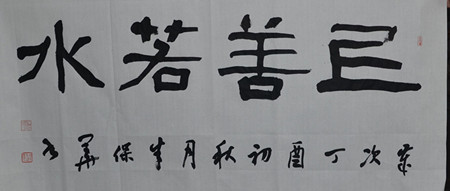 上善若水
歲次丁酉初秋月保華书